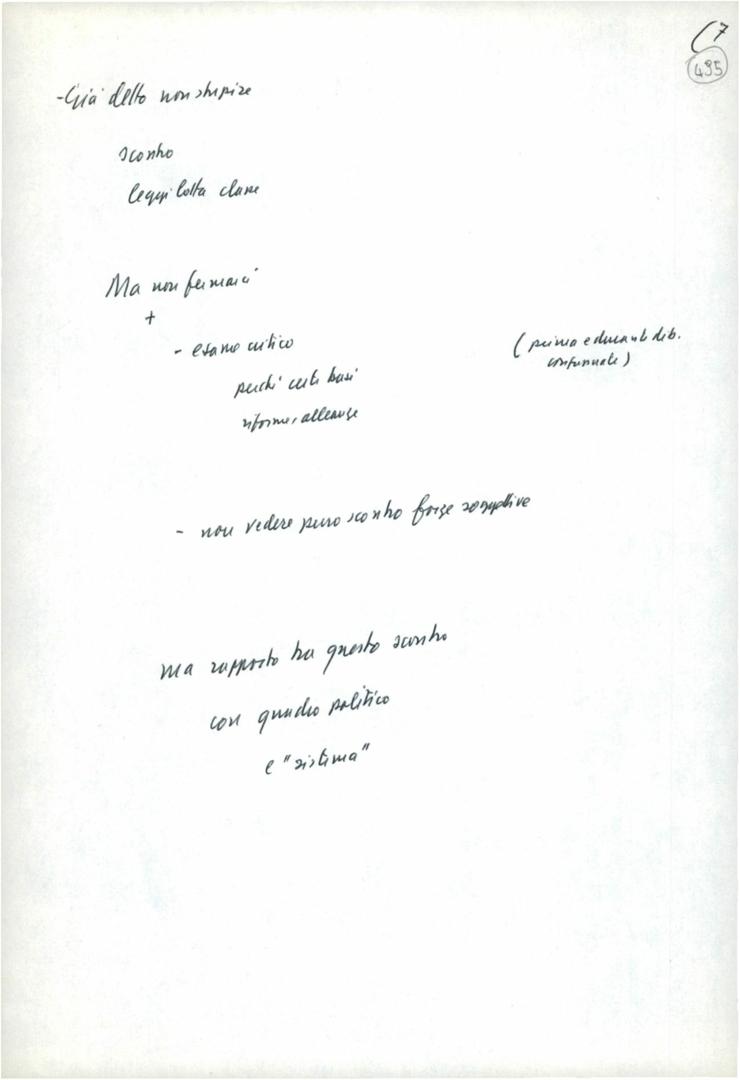 (7
495
- Già detto non stupire
scontro
leggi lotta classe
Ma non fermarci
+
- esame critico
(prima e durante dib.
confermate)
perché certe basi
riforme, alleanze
- non vedere puro scontro forze soggettive
ma rapporto tra questo scontro
con quadro politico
e "sistema"